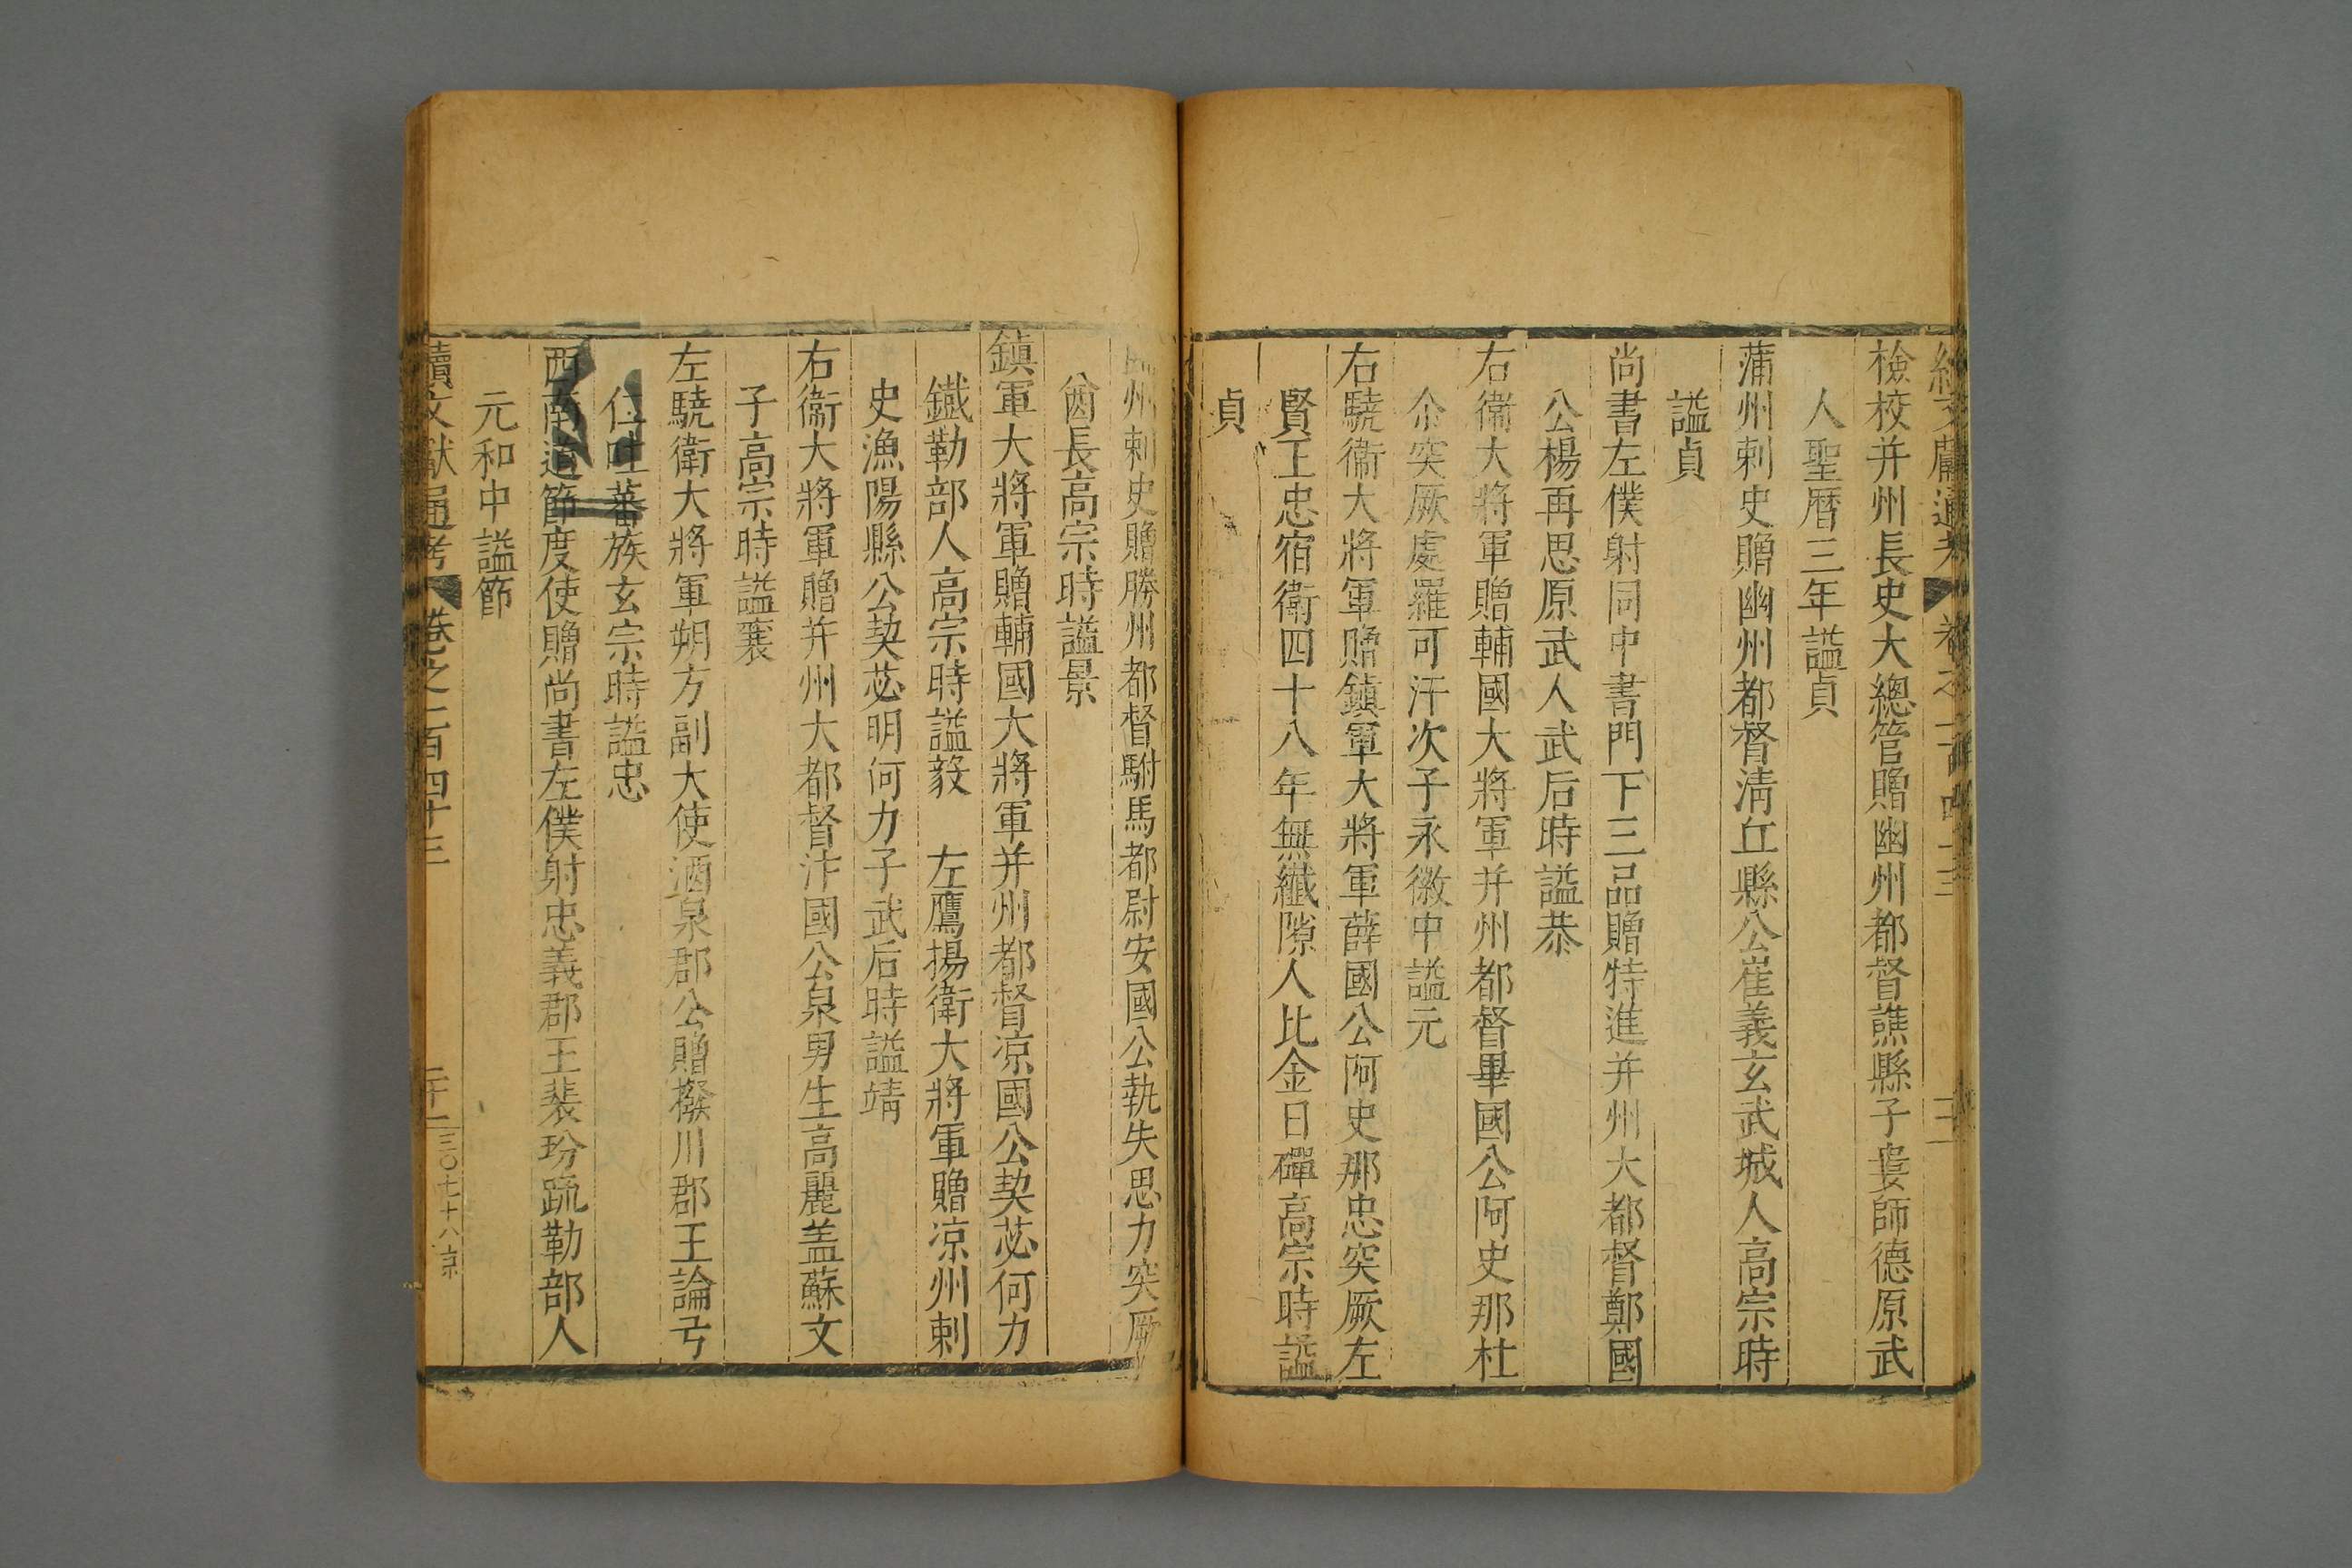 續文獻通考 卷之一百四十三
檢校并州長史大總管贈幽州都督譙縣子婁師德原武
人聖曆三年謚貞
蒲州刺史贈幽州都督清丘縣公崔義玄武城人高宗時
謚貞
尚書左僕射同中書門下三品贈特進并州大都督鄭國
公楊再思原武人武后時謚恭
右衛大將軍贈輔國大將軍并州都督畢國公阿史那杜
尒突厥處羅可汗次子永徽中謚元
右驍衛大將軍贈鎮軍大將軍薛國公阿史那忠突厥左
賢王忠宿衛四十八年無纖隙人比金日磾高宗時謚
貞
州刺史贈勝州都督駙馬都尉安國公執失思力突厥
酋長高宗時謚景
鎮軍大將軍贈輔國大將軍并州都督凉國公契苾何力
鐵勒部人高宗時謚毅 左鷹揚衛大將軍贈凉州刺
史漁陽縣公契苾明何力子武后時謚靖
右衛大將軍贈并州大都督汴國公泉男生高麗盖蘇文
子高宗時謚襄
左驍衛大將軍朔方副大使酒泉郡公贈撥川郡王論弓
仁吐蕃族玄宗時謚忠
西南道節度使贈尚書左僕射忠義郡王裴玢疏勒部人
元和中謚節
續文獻通考 卷之一百四十三 二十一 三〇七十八